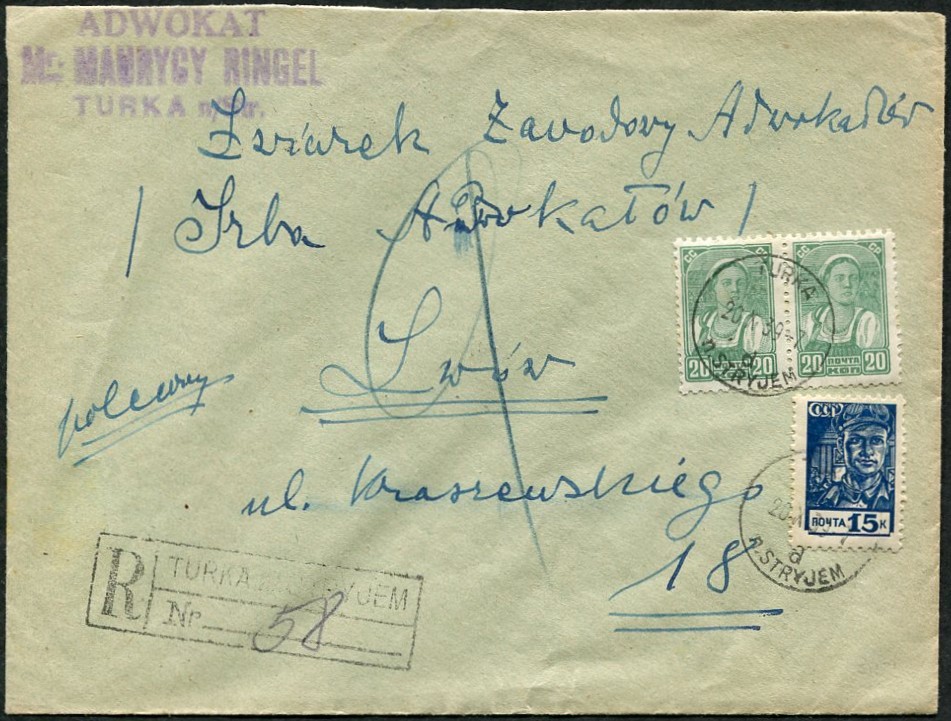 ADWOKAT
Mr MAURYCY RINGEL
TURKA n/Str.
Związek Zawodowy Adwokatów
/ Izba Adwokatów /
Lwów
polecony
ul. Kraszewskiego
18
СС
СС
20 20
20 ПОЧТА КОП 20
TURKA
20. 39
a
n.STRYJEM
СССР
ПОЧТА 15 К
20
a
n.STRYJEM
R
TURKA STRYJEM
Nr 58